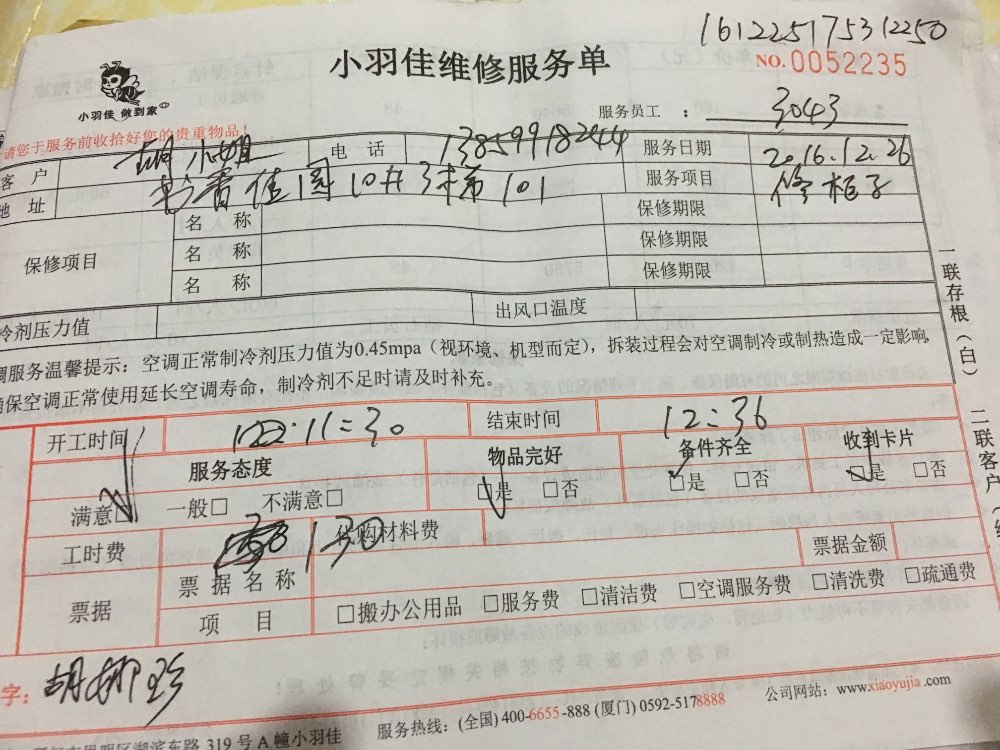 161225175312250
小羽佳维修服务单
NO.0052235
小羽佳 做到家
服务员工 : 3043
请您于服务前收拾好您的贵重物品!
客 户 胡小姐 电 话 13859918244 服务日期 2016.12.26
地 址 书香佳园10# 3梯 101 服务项目 修柜子
保修项目 名 称 保修期限
名 称 保修期限
名 称 保修期限
冷剂压力值 出风口温度
调服务温馨提示：空调正常制冷剂压力值为0.45mpa（视环境、机型而定），拆装过程会对空调制冷或制热造成一定影响，
确保空调正常使用延长空调寿命，制冷剂不足时请及时补充。
一联存根（白）
二联客户
开工时间 11:30 结束时间 12:36
服务态度 物品完好 备件齐全 收到卡片
满意□ 一般□ 不满意□ □是 □否 □是 □否 □是 □否
工时费 130 代购材料费 票据金额
票据 票据名称
项 目 □搬办公用品 □服务费 □清洁费 □空调服务费 □清洗费 □疏通费
字：胡柳珍
服务热线：(全国) 400-6655-888 (厦门) 0592-5178888 公司网站：www.xiaoyujia.com
思明区湖滨东路 319 号 A 幢小羽佳